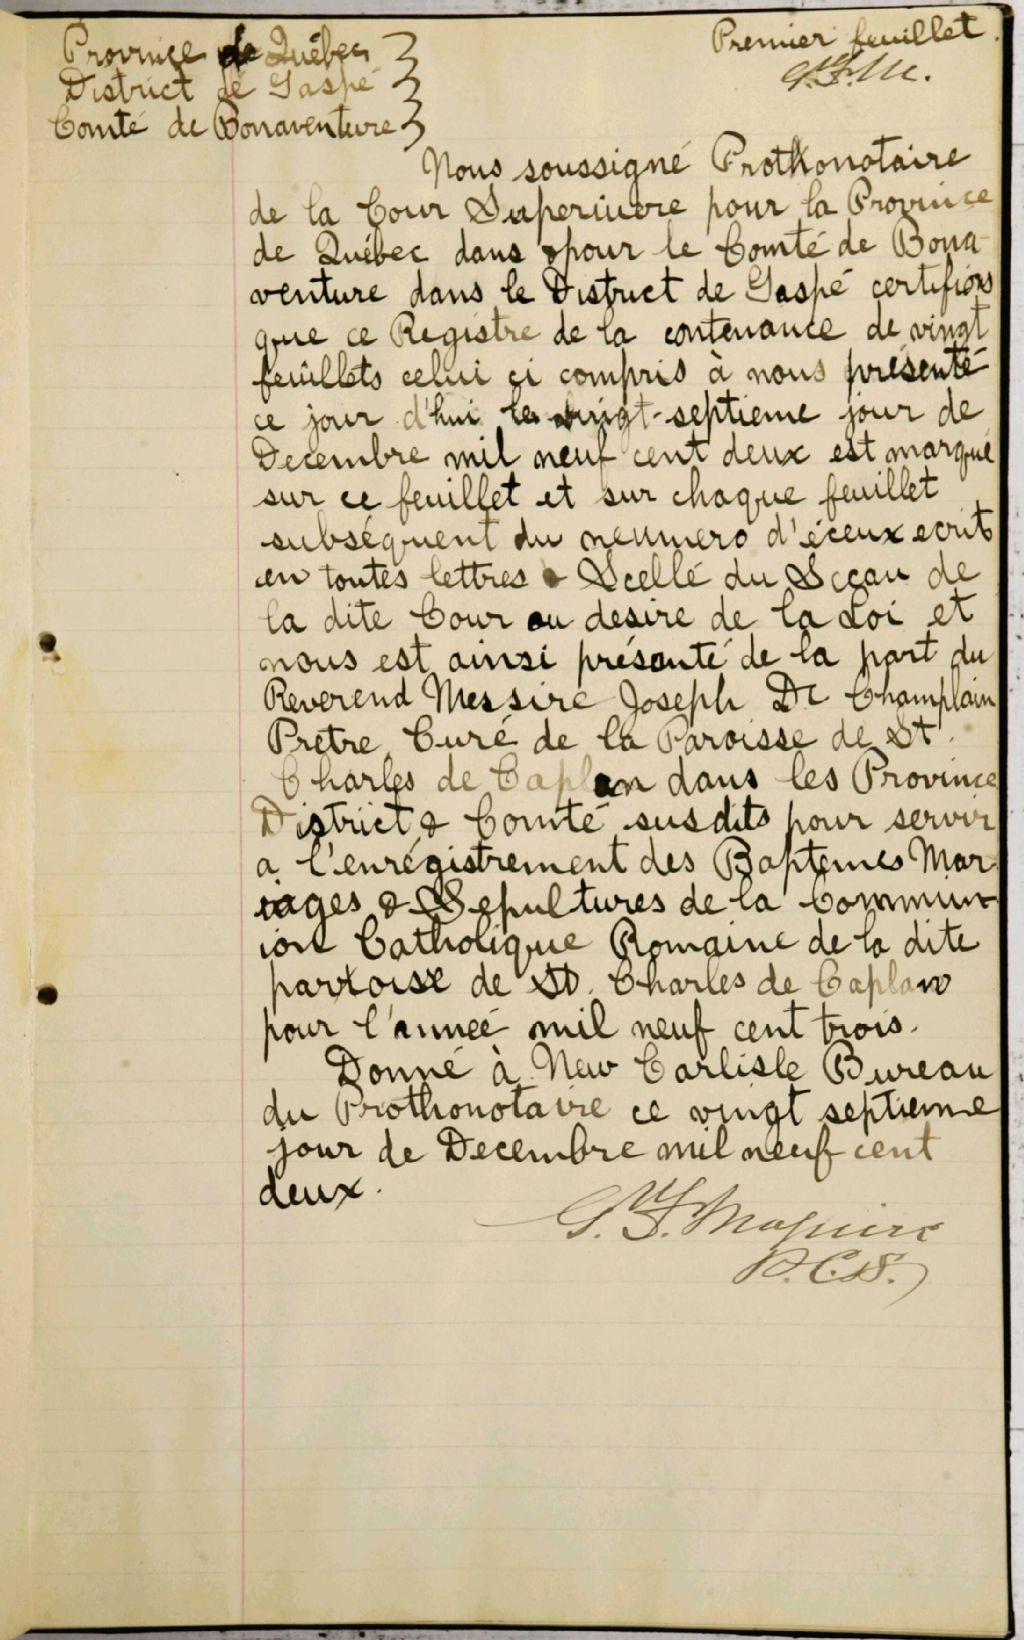 Province de Québec
District de Gaspé
Comté de Bonaventure
Premier feuillet.
G.F.M.
Nous soussigné Prothonotaire
de la Cour Superieure pour la Province
de Québec dans & pour le Comté de Bona-
venture dans le District de Gaspé certifions
que ce Registre de la contenance de vingt
feuillets celui ci compris à nous présenté
ce jour d'hui le vingt-septieme jour de
Decembre mil neuf cent deux est marqué
sur ce feuillet et sur chaque feuillet
subséquent du neumero d'éceux ecrit
en toutes lettres & Scellé du Sceau de
la dite Cour au desire de la Loi et
nous est ainsi présenté de la part du
Reverend Messire Joseph De Champlain
Pretre Curé de la Paroisse de St.
Charles de Caplan dans les Province
District & Comté susdits pour servir
a l'enrégistrement des Baptemes Mar
iages & Sepultures de la Commun
ion Catholique Romaine de la dite
parroisse de St. Charles de Caplan
pour l'anneé mil neuf cent trois.
Donné à New Carlisle Bureau
du Prothonotaire ce vingt septieme
jour de Decembre mil neuf cent
deux.
G. F. Maguire
P.C.S.